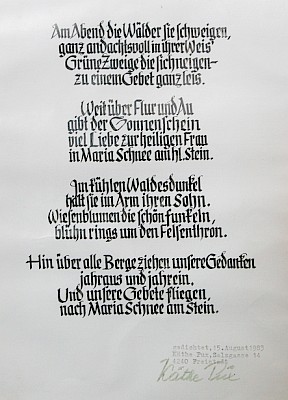 Am Abend die Wälder sie schweigen,
ganz andachtsvoll in ihrer Weis'
Grüne Zweige die sich neigen-
zu einem Gebet ganz leis.
Weit über Flur und Au
gibt der Sonnenschein
viel Liebe zur heiligen Frau
in Maria Schnee am hl. Stein.
Im kühlen Waldesdunkel
hält sie im Arm ihren Sohn.
Wiesenblumen die schön funkeln,
blühn rings um den Felsenthron.
Hin über alle Berge ziehen unsere Gedanken
jahraus und jahrein,
Und unsere Gebete fliegen,
nach Maria Schnee am Stein.
gedichtet, 15. August 1983
Käthe Pux, 14
4240 Freistadt
Käthe Pux